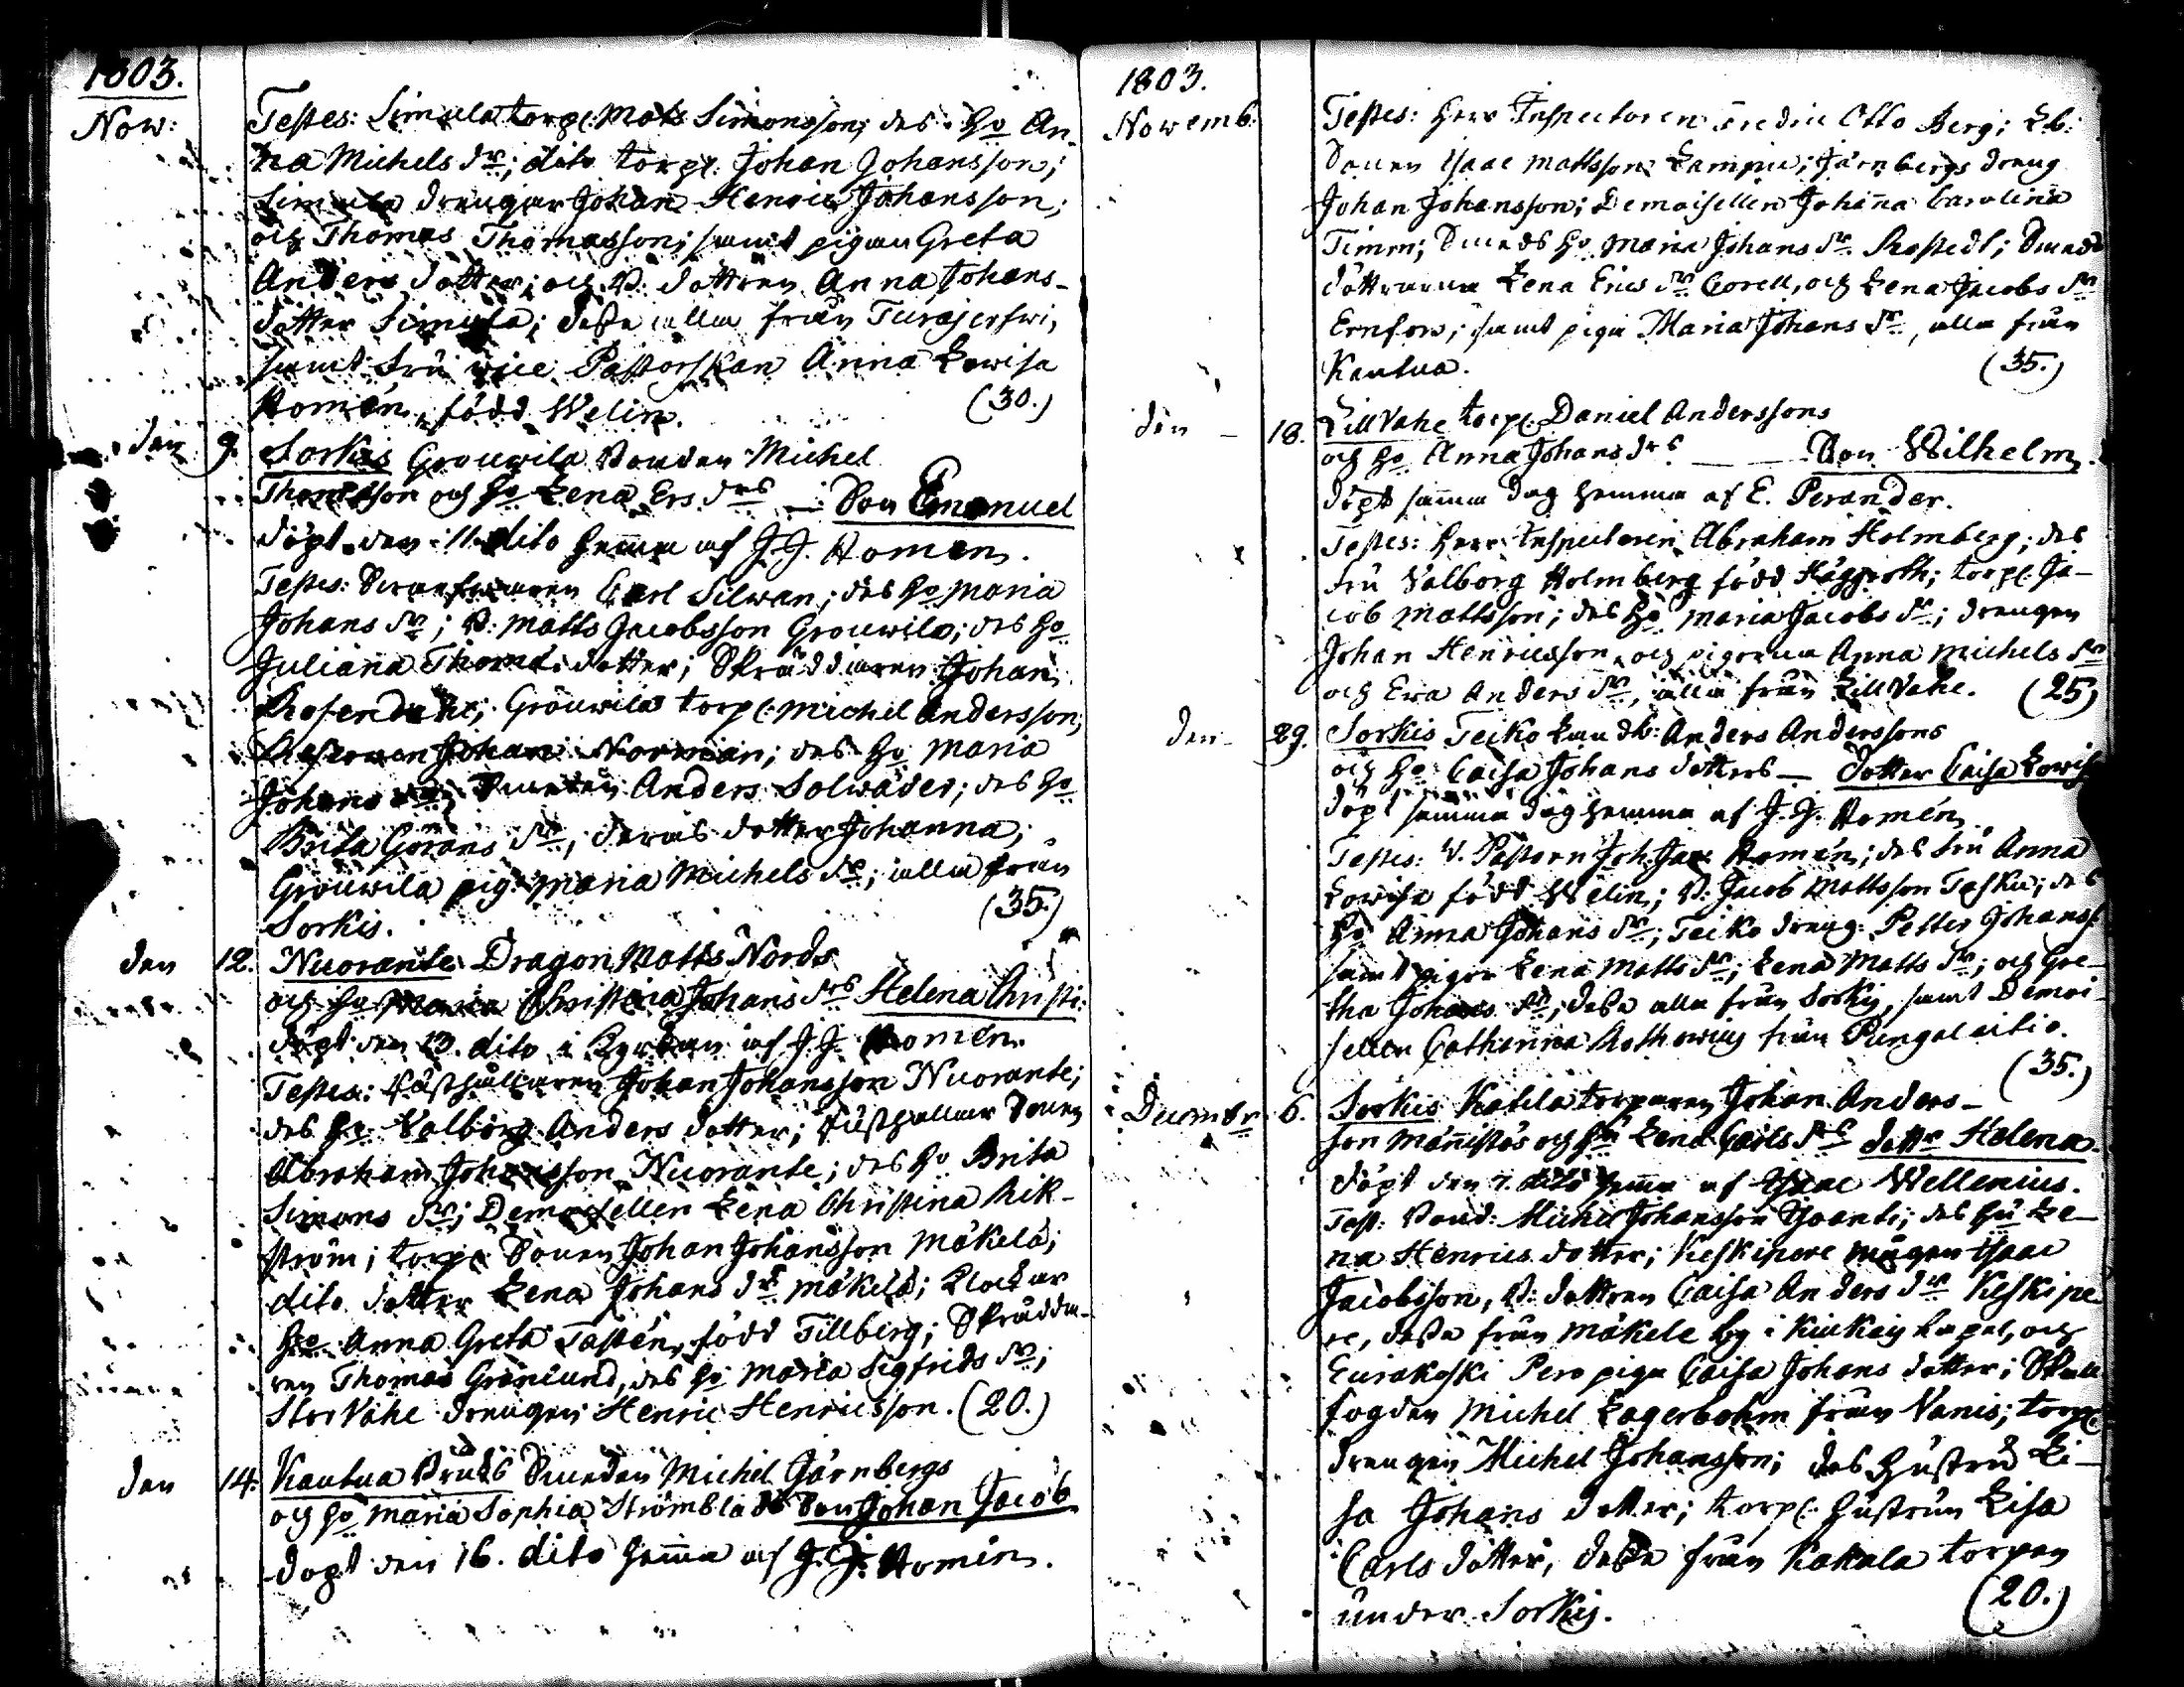 1803.
Nov:
Testes: Simula torp: Mats Simonsson; des ho An-
na Michels dr; dito torp: Johan Johansson;
Simula drengar Johan Henric Johansson;
och Thomas Thomasson; samt pigan Greta
Anders dotter; och B: dottren Anna Johans-
dotter Simula; desse alla från Turajerfwi,
samt Fru vice Pastorskan Anna Lovisa
Homén, född Welin. (30.)
den 9. Sorkis Grouwila Bonden Michel
Thomasson och ho Lena Ers drs — Son Emanuel
döpt den 11. dito hemma af J. J. Homén.
Testes: Carl Silwan; des ho Maria
Johans dr; B: Matts Jacobsson Grouwila; des ho
Juliana Thomæ dotter; Skräddaren Johan
Rosendahl; Grouwila torp: Michel Andersson;
Johan Norman; des ho Maria
Johans dr; Smeden Anders Solwäder; des ho
Brita Görans dr; deras dotter Johanna;
Grouwila pig: Maria Michels dr; alla från
Sorkis. (35.)
den 12. Nuorante Dragon Matts Nords
och ho Maria Christina Johans drs Helena Christi:
döpt den 13. dito i Kyrkan af J. J. Homén.
Testes: Rusthållaren Johan Johansson Nuorante;
des ho Valborg Anders dotter; Rusthållare Sonen
Abraham Johansson Nuorante; des ho Brita
Simons dr; Demoisellen Lena Christina Rik-
ström; torp: Sonen Johan Johansson Mäkelä;
dito dotter Lena Johans dr Mäkelä; Klockar
ho Anna Greta Tastén, född Tillberg; Skrädda-
ren Thomas Grönlund, des ho Maria Sigfrids dr;
Stor Vahe drengen Henric Henricsson. (20.)
den 14. Kautua Bruks Smeden Michel Järnbergs
och ho Maria Sophia Strömblads Son Johan Jacob
döpt den 16. dito hemma af J. J. Homén.
1803.
Novemb:
Testes: Herr Inspectoren Fredric Otto Berg; Lb:
Sonen Isaac Mattsson Lampia; Järnbergs dreng
Johan Johansson; Demoisellen Johanna Carolina
Timm; Smeds ho Maria Johans dr Rostedt; Smeds
döttrarna Lena Erics dr Corell, och Lena Jacobs dr
Ernfors; samt piga Maria Johans dr, alla från
Kautua. (35.)
den – 18. Lill Vahe torp: Daniel Anderssons
och ho Anna Johans drs — Son Wilhelm.
döpt samma dag hemma af E. Perander.
Testes: Herr Inspectoren Abraham Holmberg; des
Fru Valborg Holmberg född Häggroth; torp: Ja-
cob Mattsson; des ho Maria Jacobs dr; drengen
Johan Henricsson, och pigorna Anna Michels dr
och Eva Anders dr, alla från Lill Vahe. (25)
den – 29. Sorkis Teiko Landb: Anders Anderssons
och ho Caisa Johans dotters — dotter Caisa Lowis
döpt samma dag hemma af J. J. Homén.
Testes: V. Pastorn Joh Jac Homén; des Fru Anna
Lowisa född Welin; B: Jacob Mattsson Taska; des
ho Anna Johans dr; Teiko dreng: Petter Johanss:
samt pigor Lena Matts dr; Lena Matts dr; och Gre-
tha Johans dr; desse alla från Sorkis, samt Demoi-
sellen Catharina Rothovius från Pungalaitio.
(35.)
December 6. Sorkis Kakela torparen Johan Anders-
son Männistös och hu Lena Carls drs dottr Helena.
döpt den 7. dito hemma af Isaac Wellenius.
Test: Bond: Michel Johansson; des hu Le-
na Henrics dotter; Keskipere mågen Isaac
Jacobsson, B: dottren Caisa Anders dr Keskipe-
re, desse från Mäkele by i Kiukais Capel, och
Eurakoski Pero piga Caisa Johans dotter; Skall
fogden Michel Lagerbohm från Vanis; torp:
drengen Michel Johansson; des hustru Li-
sa Johans dotter; torp: hustrun Lisa
Carls dotter, desse från Kakala torpen
under Sorkis. (20.)